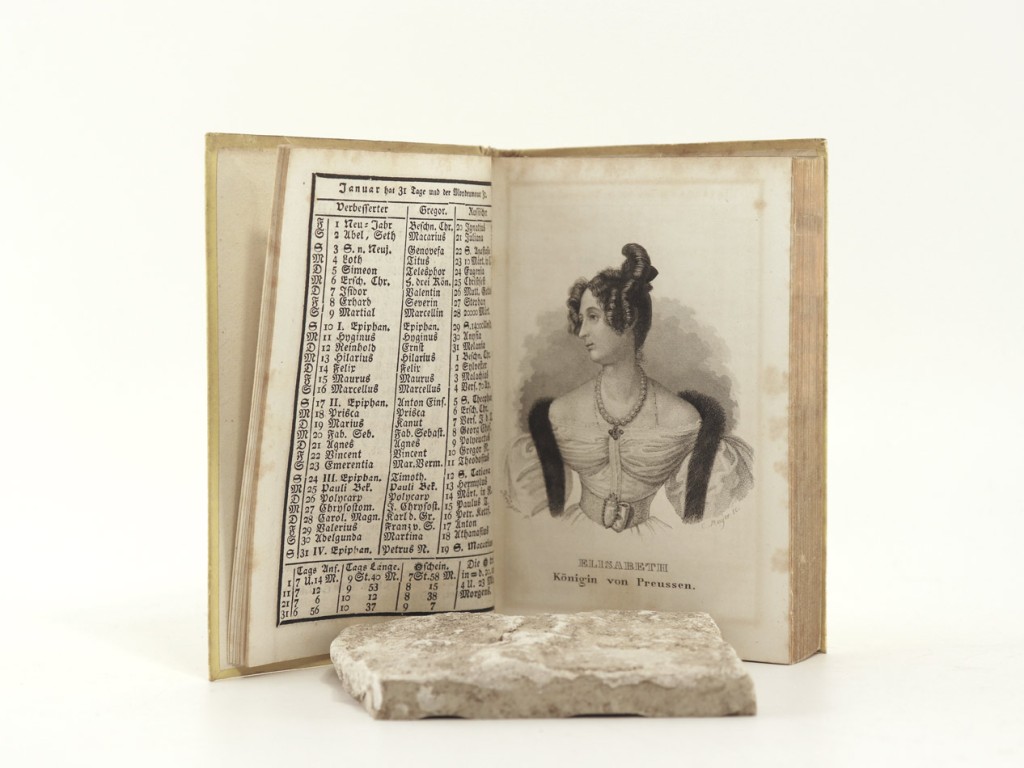 Januar hat 31 Tage und der Mondesumme
Verbesserter Gregor. Russische
F 1 Neu-Jahr Beschn. Chr. 20 Ignatius
S 2 Abel, Seth Macarius 21 Juliana
S 3 S. n. Neuj. Genovefa 22 S. Anastasia
M 4 Loth Titus 23 10 Märt. in C.
D 5 Simeon Telesphor 24 Eugenia
M 6 Ersch. Chr. H. drei Kön. 25 Christfest
D 7 Isidor Valentin 26 Mutt. Gott.
F 8 Erhard Severin 27 Stephan
S 9 Martial Marcellin 28 20000 Märt.
S 10 I. Epiphan. Epiphan. 29 S. 14000
M 11 Hyginus Hyginus 30 Anysia
D 12 Reinhold Ernst 31 Melania
M 13 Hilarius Hilarius 1 Beschn. Chr.
D 14 Felix Felix 2 Sylvester
F 15 Maurus Maurus 3 Malachias
S 16 Marcellus Marcellus 4 Vers. 70 Ap.
S 17 II. Epiphan. Anton Eins. 5 S. Theoph.
M 18 Prisca Prisca 6 Ersch. Chr.
D 19 Marius Kanut 7 Vers. J. d. T.
M 20 Fab. Seb. Fab. Sebast. 8 Georg
D 21 Agnes Agnes 9 Polyeuctus
F 22 Vincent Vincent 10 Gregor N.
S 23 Emerentia Mar. Verm. 11 Theodosius
S 24 III. Epiphan. Timoth. 12 S. Tatiana
M 25 Pauli Bek. Pauli Bek. 13 Hermylus
D 26 Polycarp Polycarp 14 Märt. in R.
M 27 Chrysostom. J. Chrysost. 15 Paulus T.
D 28 Carol. Magn. Karl d. Gr. 16 Petr. Kettf.
F 29 Valerius Franz v. S. 17 Anton
S 30 Adelgunda Martina 18 Athanasius
S 31 IV. Epiphan. Petrus N. 19 S. Macarius
Tags Anf. Tags Länge. schein. Die
1 7 U. 14 M. 9 St. 40 M. 7 St. 58 M. in d. 20.
11 7 12 9 53 8 15 4 U. 23 M.
21 7 10 12 8 38 Morgens.
31 6 56 10 37 9 7
ELISABETH
Königin von Preussen.